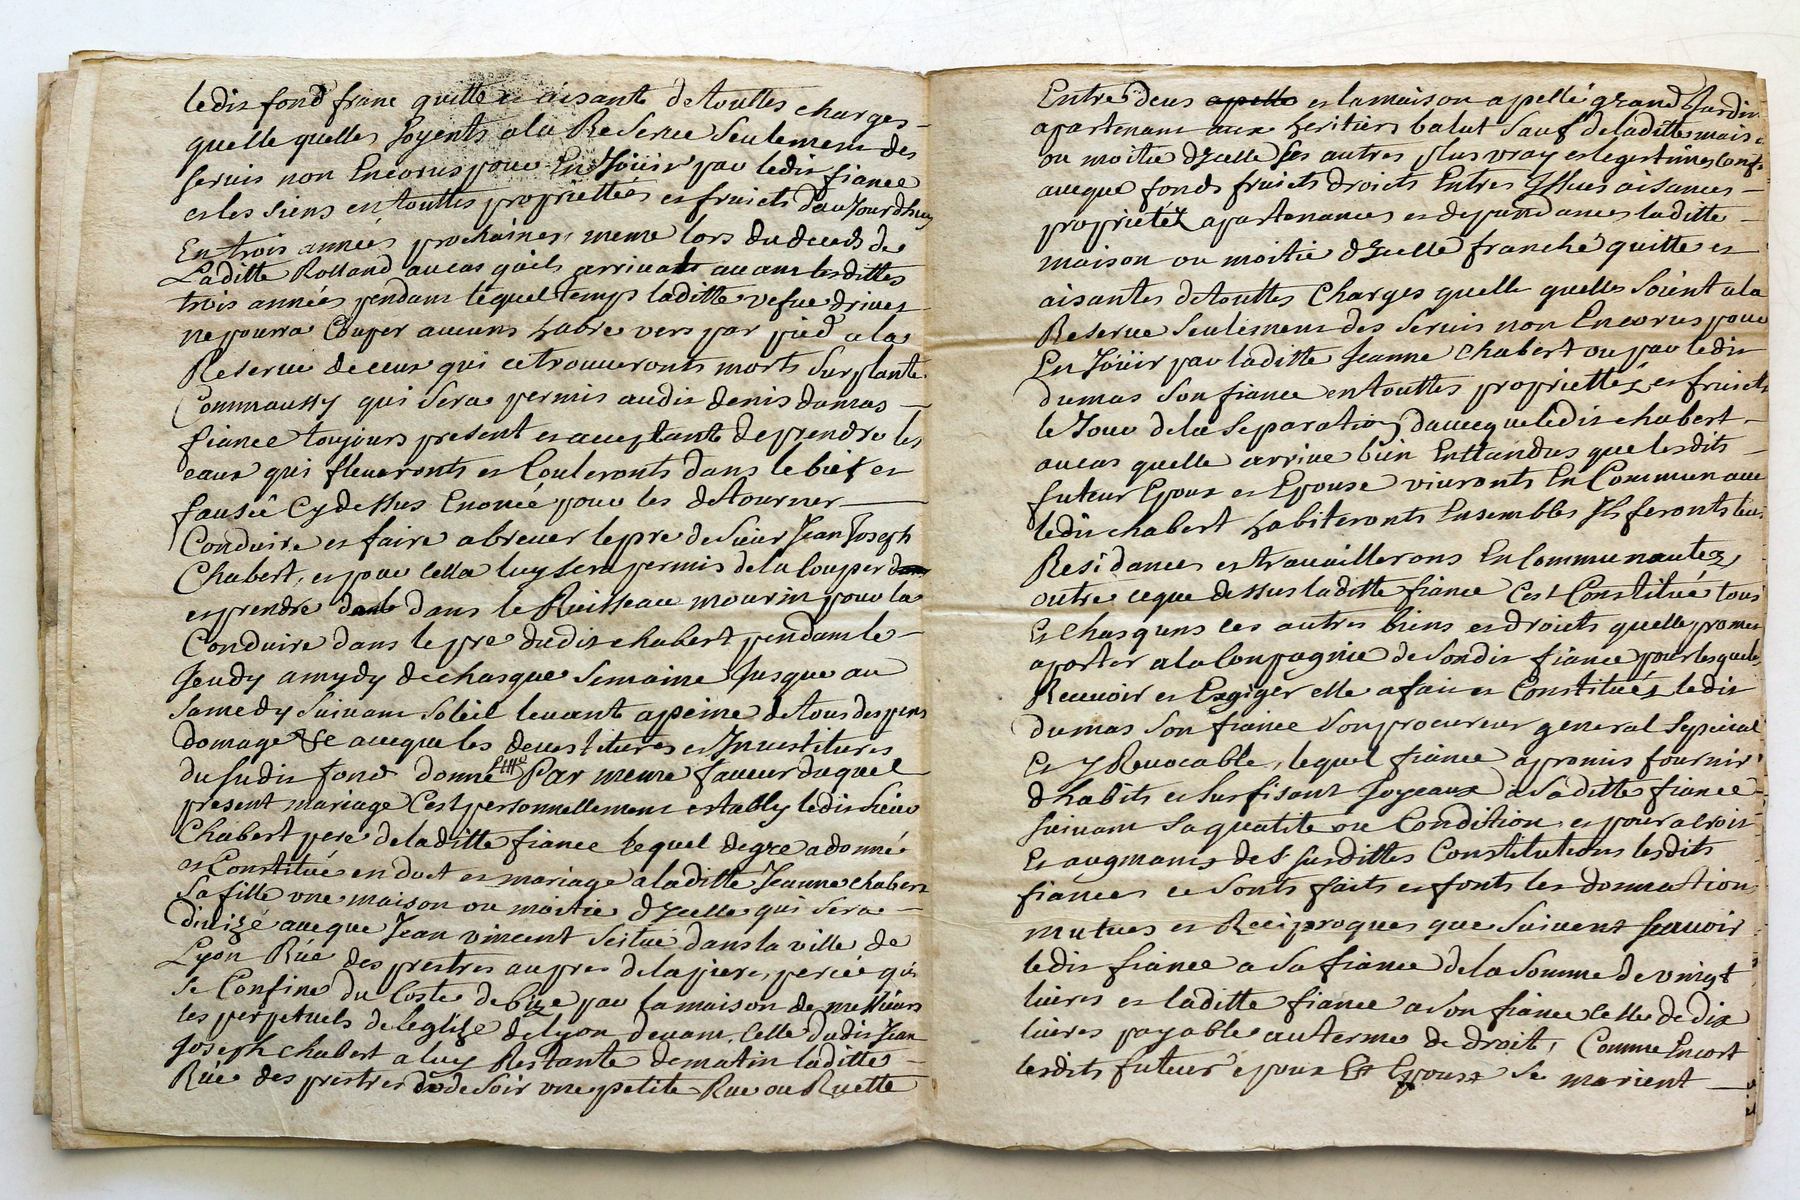 ledit fond franc quitte et aisante de touttes charges
quelle quelles soyents a la Reserve Seulement des
servis non Encorus pour En Joüir par ledit fiance
et les siens en touttes propriettes et fruicts daujourdhuy
En trois années prochaines, meme lors du deceds de
Laditte Rolland au cas quils arrivats avant lesdittes
trois années pendant lequel temps laditte vefue
ne pourra Couper aucuns habre vers par pied a la
Reserve deceux qui ce trouveronts morts Sur plante
Comme aussy qui Sera permis audit denis dumas
fiance toujours present et acceptante de prendre les
eaux qui flueronts et Couleronts dans le bief et
fausée Cy dessus Enoncé pour les detourner
Conduire et faire abreuer le pre de Sieur Jean Joseph
Chabert, et pour cella luy sera permis de la Couper
et prendre dans le Ruisseau mourin pour la
Conduire dans le pre dudit chabert pendant le
Jeudy a mydy de chasque Semaine Jusque au
Samedy Suivant Soleil levant a peine de tous despens
domage &c avecque les devestitures et Investitures
du Sudit fond donné Par meme faveur duquel
present mariage C'est personnellement estably ledit Sieur
Chabert pere de laditte fiance lequel de gre a donné
et Constitué en doct et mariage a laditte Jeanne chabert
Sa fille une maison ou moitie d'ycelle qui sera
divizé avecque Jean vincent Scitué dans la ville de
Lyon Rüe des prestres aupres de la piere percée qui
Se Confine du Coste de bize par la maison de messieurs
les perpetuels de leglize de lyon devant, Celle dudit Jean
Joseph chabert a luy Restante de matin laditte
Rüe des prestres de Soir une petite Rue ou Ruette
Entre deux apelle et la maison apellé grand Jardin
apartenant aux heritiers balut Sauf de laditte maison
ou moitie d'ycelle ses autres plus vray et legestimes Conf
avecque fonds fruicts droicts Entres Yssues aisances
proprietéz apartenances et depandances laditte
maison ou moitié d'ycelle franche quitte et
aisantes de touttes Charges quelle quelles soient a la
Reserve Seulement des Servis non Encorus pour
En Joüir par laditte Jeanne chabert ou par ledit
dumas Son fiance en touttes propriettéz et fruicts
le Jour de la Separation davecque ledit chabert
au cas quelle arrive bien Enttandus que lesdits
futeur Epoux et Epouse vivronts En Commun avec
ledit chabert habiteronts Ensembles Ils feronts leur
Residances et travaillerons En Communautez
outre ceque dessus laditte fiance C'est Constitué tous
Et chasquns ces autres biens et droicts quelle promet
aporter a la Compagnie de Sondit fiance pour lesquels
Recevoir et Exgiger elle a fait et Constitué ledit
dumas Son fiance Son procureur general Sepecial
Et yRevocable, lequel fiance a promis fournir
d'habits et Sufisant Joyeaux a Saditte fiance
Suivant Sa qualite ou Condition et pour a croir
Et augmants des susdittes Constitutions lesdits
fiances ce Sonts faits et fonts les donnations
mutues et Reciproques que Suivent Scauoir
ledit fiance a Sa fiance de la Somme de vingt
livres et laditte fiance a Son fiance Celle de dix
livres payable au terme de droit, Comme Encort
lesdits futeur epoux Et Epouse Se marient